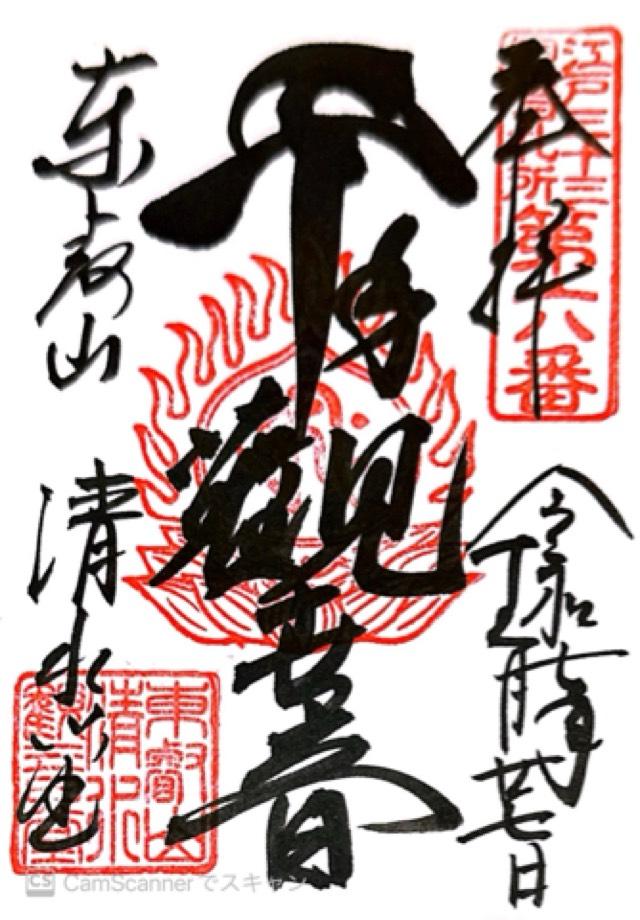 奉拝
江戸三十三
観音札所第六番
令和
廿七日
千手觀世音
東叡山
清水堂
東叡山
清水
觀音堂
CS CamScanner でスキャン